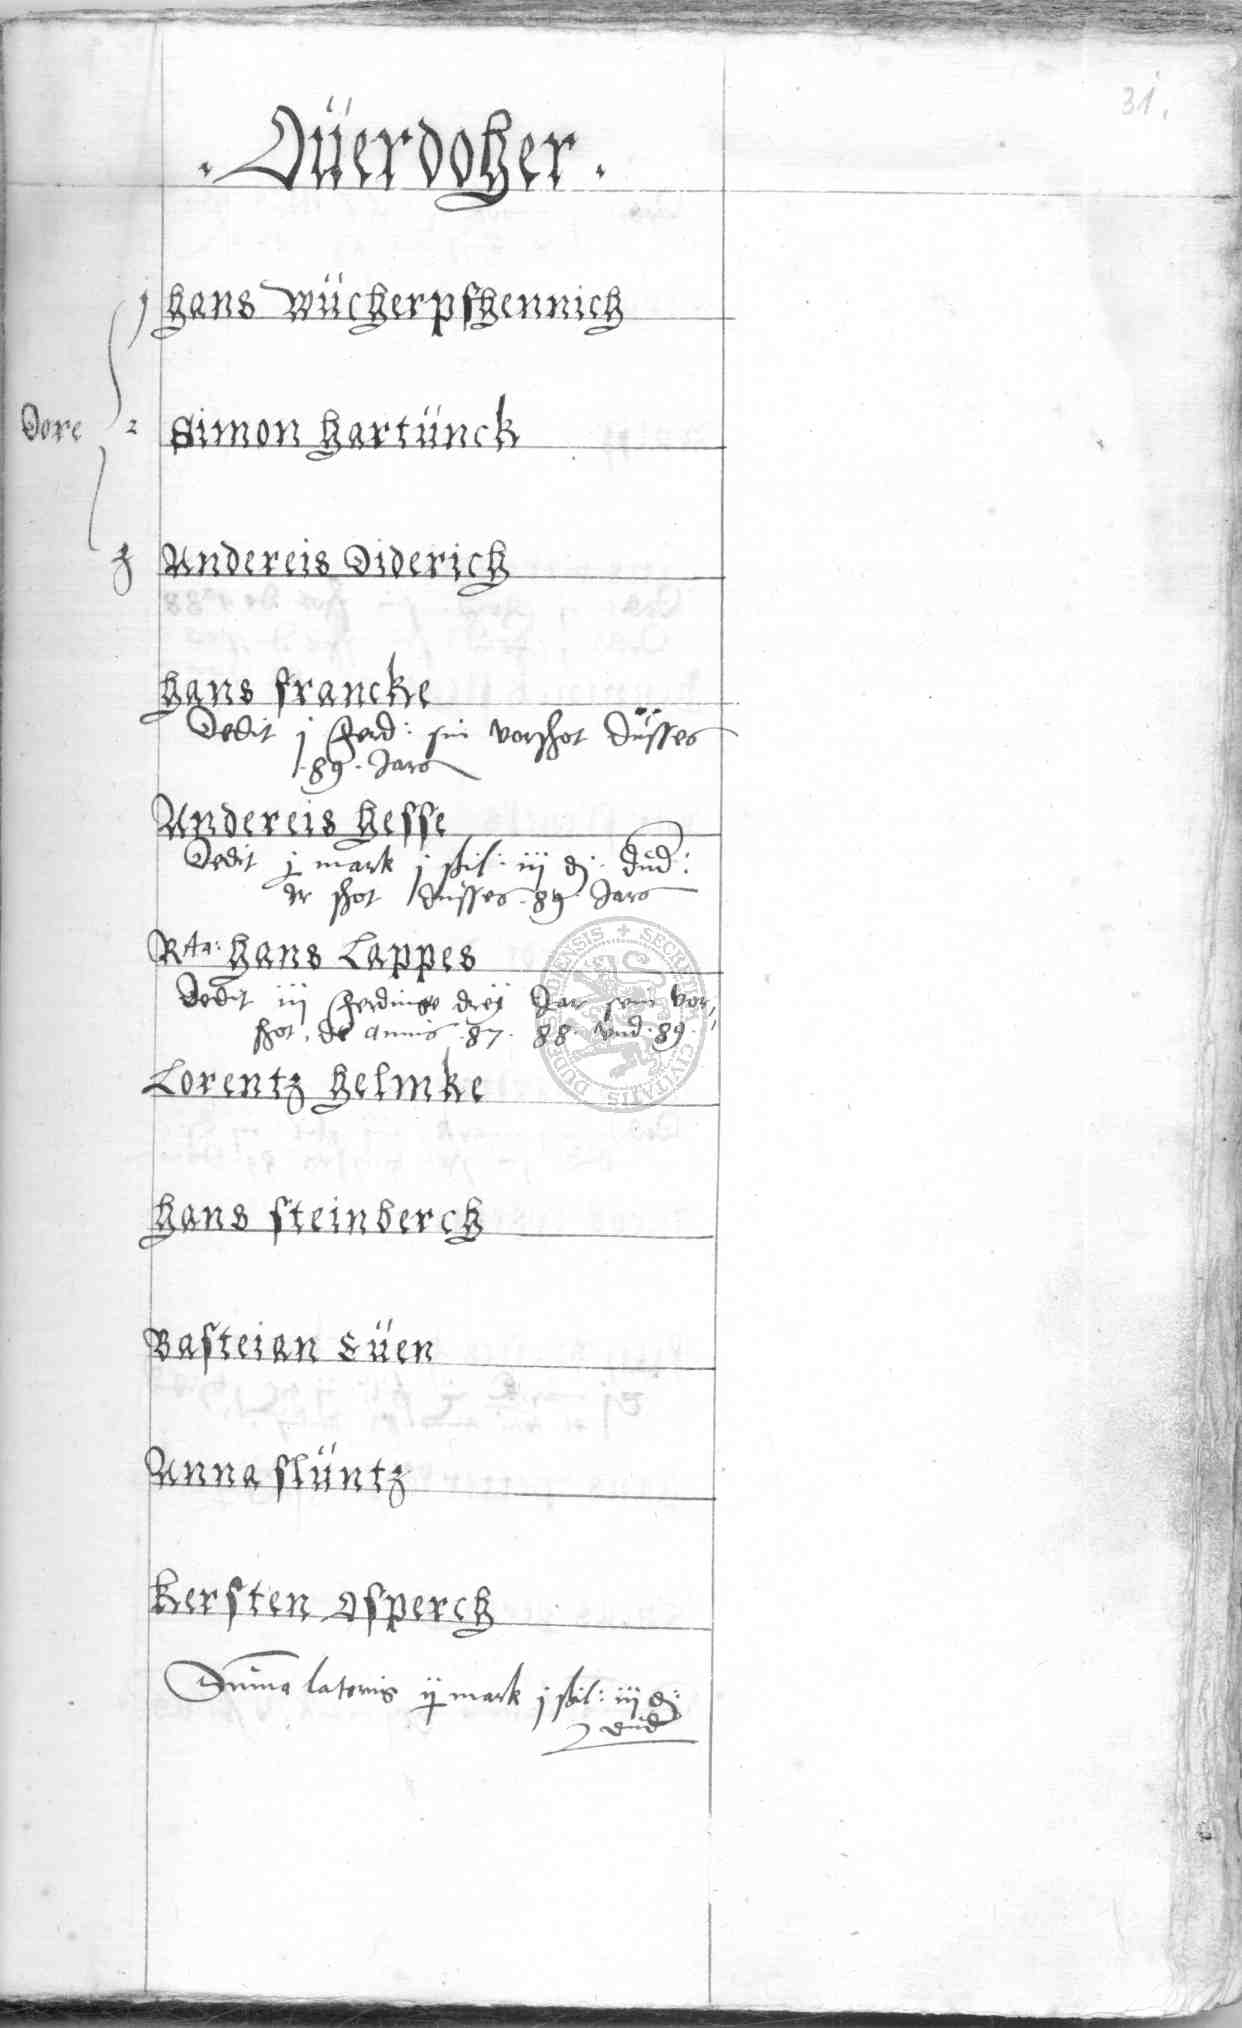 31.
. Düerdoher .
j hans Wücherpfhennich
Dore 2 Simon hartünck
3 Andereis Diderich
hans francke
Dedit j ferd: sin vorshot düsses
.89. Jars
Andereis hesse
Dedit j mark j shil: iij dj: dud:
er shot düsses .89. Jars
Rta: hans Lappes
Dedit iij ferdinge dreÿ Jar sein vor
shot, de annis .87. 88. vnd .89.
Lorentz helmke
hans steinberch
Basteian Süen
Anna slüntz
kersten Osperch
Suma lateris ij mark j shil: iij dj:
dud
SECRETUM CIVITATIS DUDERSTADIENSIS